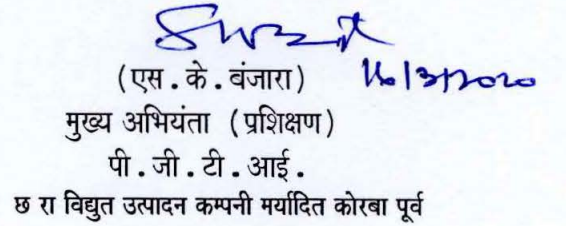 (एस.के.बंजारा) 16/3/2020
मुख्य अभियंता (प्रशिक्षण)
पी.जी.टी.आई.
छ रा विद्युत उत्पादन कम्पनी मर्यादित कोरबा पूर्व